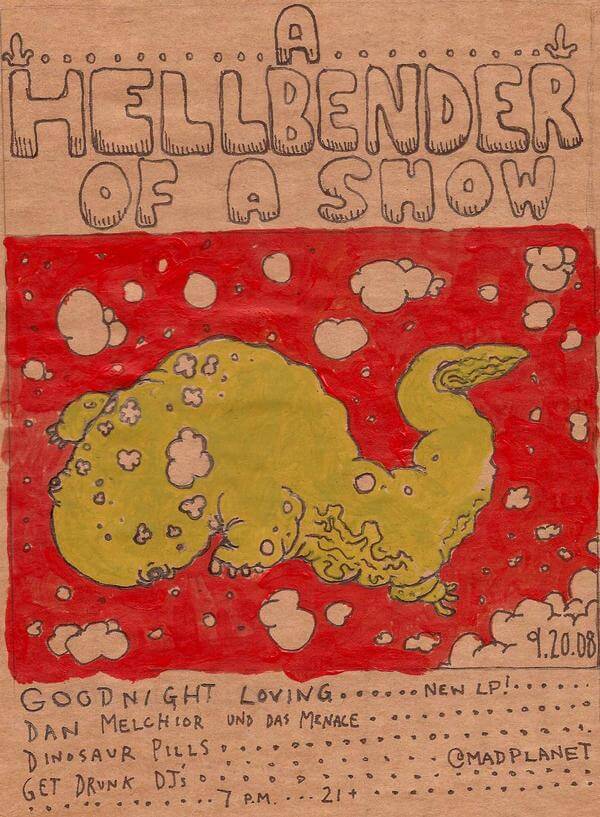 A
HELLBENDER
OF A SHOW
9.20.08
GOODNIGHT LOVING......NEW LP!....
DAN MELCHIOR UND DAS MENACE
DINOSAUR PILLS
@MADPLANET
GET DRUNK DJs
7 P.M. .... 21+